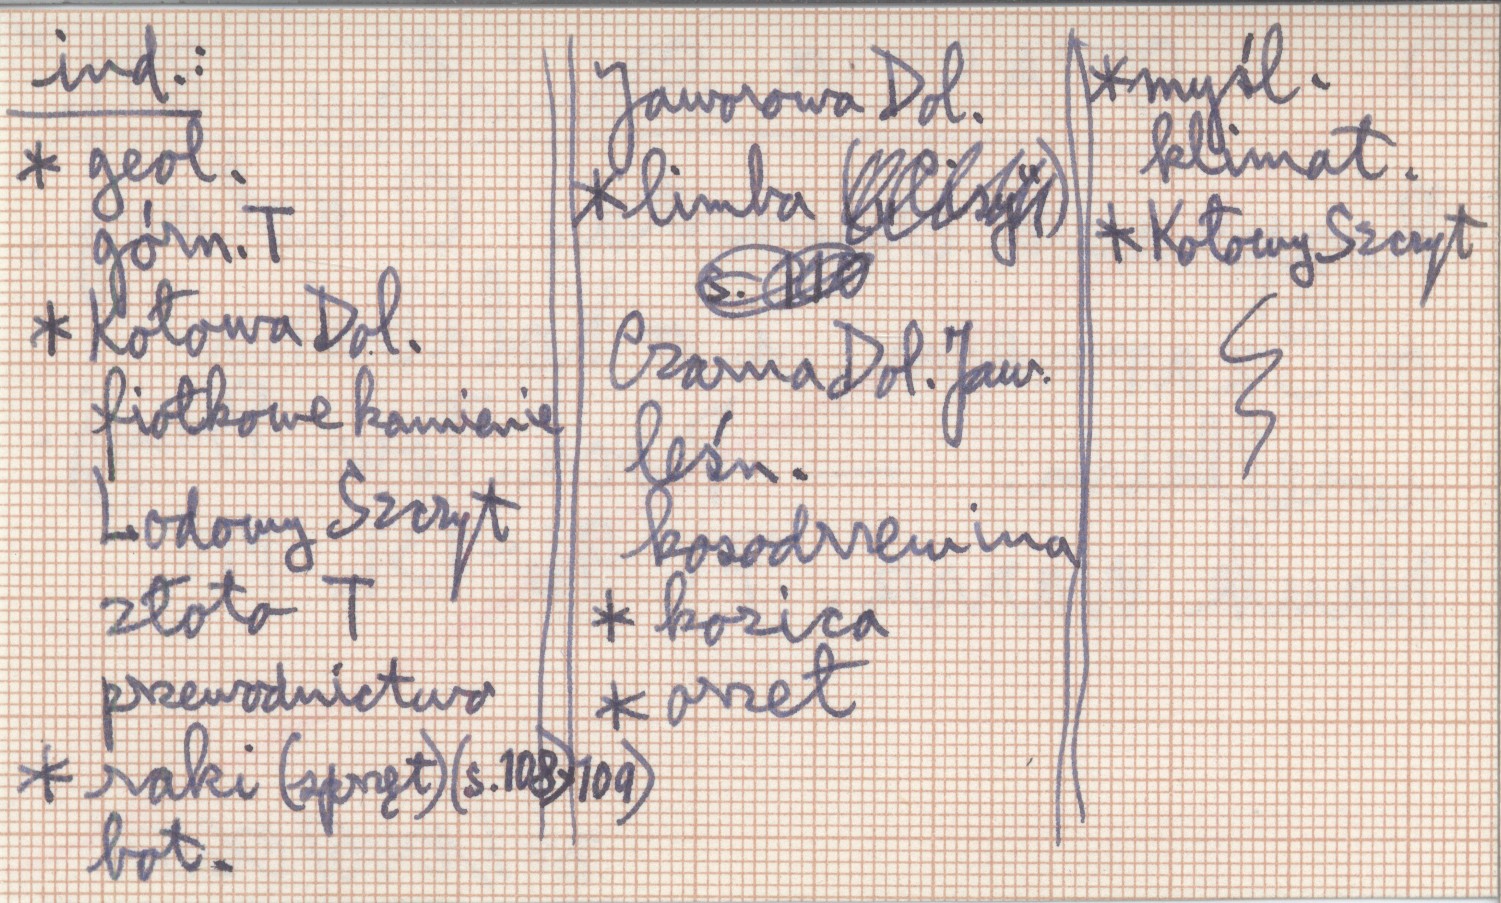 ind.:
* geol.
górn. T
* Kołowa Dol.
fiołkowe kamienie
Lodowy Szczyt
złoto T
przewodnictwo
* raki (sprzęt) (s. 108, 109)
bot.
Jaworowa Dol.
* limba
s. 110
Czarna Dol. Jaw.
leśn.
kosodrzewina
* kozica
* orzeł
* myśl.
klimat.
* Kołowy Szczyt